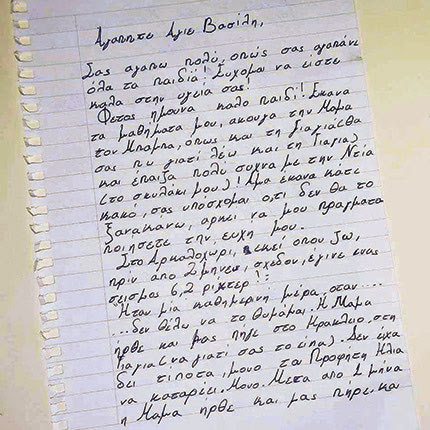 Αγαπητε Αγιε Βασίλη,
Σας αγαπω πολύ, οπώς σας αγαπάνε
όλα τα παιδιά! Ευχομαι να είστε
καλα στην υγεία σας!
Φετος ήμουνα καλο παιδί! Εκανα
τα μαθήματα μου, ακουγα την Μαμα
τον Μπαμπα, όπως και τη Γιαγιά(θα
σας πω γιατί λέω και τη Γιαγια)
και έπαιξα πολυ συχνα με την Ντία
(το σκυλάκι μου)! Άμα έκανα κατι
κακο, σας υπόσχομαι ο,τι δεν θα το
ξανακανω, αρκει να μου πραγματο
ποιησετε την ευχη μου.
Στο Αρκαλοχώρι, εκεί οπου ζω,
πρίν απο 2 μήνες, σχεδον, έγινε ενας
σεισμος 6,2 ριχτερ!!
Ήταν μια καθημερινή μέρα, οταν....
...δεν θέλω να το θυμάμαι. Η Μαμα
ήρθε και μας πηγε στο Ηρακλειο, στη
Γιαγια(να γιατί σας το είπα). Δεν έχα
δει τιποτα, μονο τον Προφητη Ηλια
να καταρέει. Μονο. Μετα απο 1 μήνα
η Μαμα ήρθε και μας πήρε. και